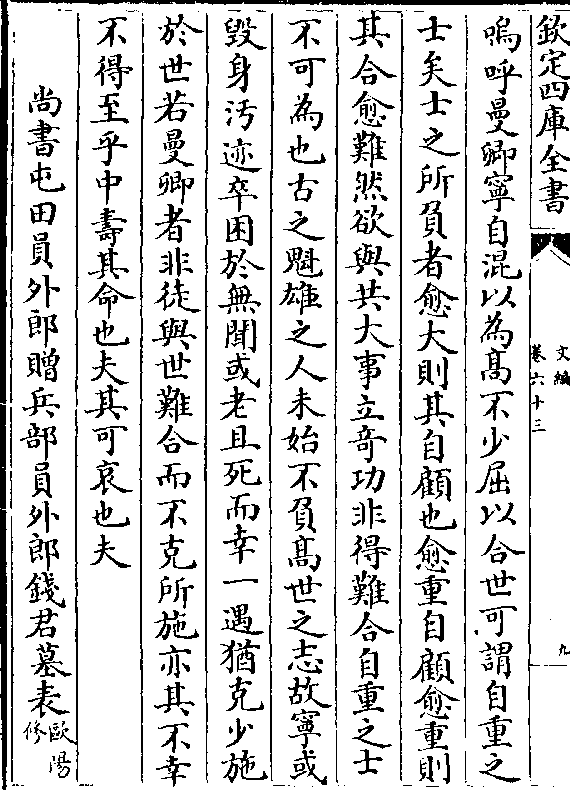 欽定四庫全書
文編
卷六十三
九
嗚呼曼卿寧自混以為髙不少屈以合世可謂自重之
士矣士之所負者愈大則其自顧也愈重自顧愈重則
其合愈難然欲與共大事立竒功非得難合自重之士
不可為也古之魁雄之人未始不負髙世之志故寧或
毀身汚迹卒困於無聞或老且死而幸一遇猶克少施
於世若曼卿者非徒與世難合而不克所施亦其不幸
不得至乎中壽其命也夫其可哀也夫
尚書屯田員外郎贈兵部員外郎錢君墓表歐陽修